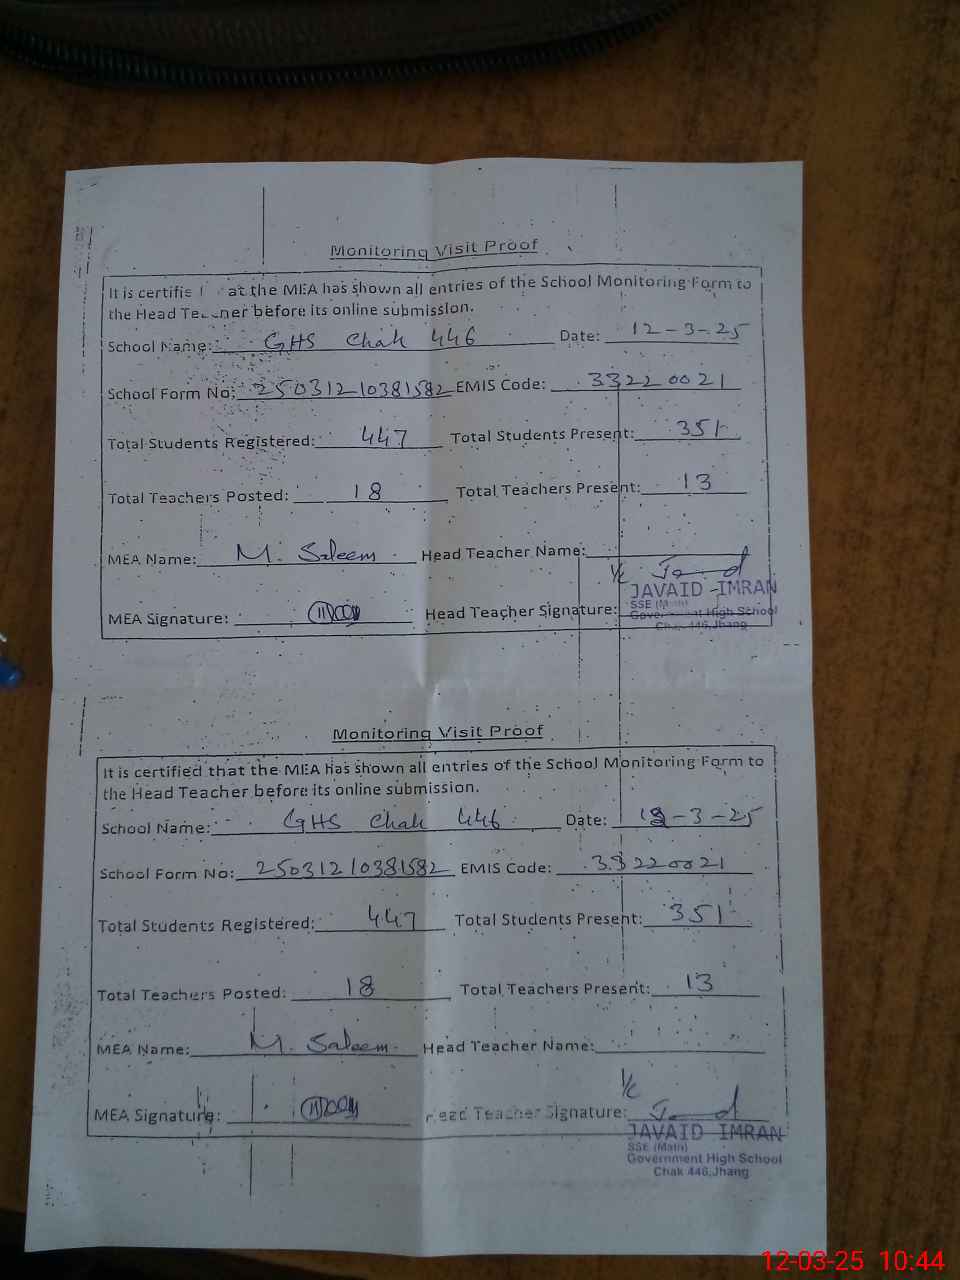 Monitoring Visit Proof
It is certifie at the MEA has shown all entries of the School Monitoring Form to
the Head Te ner before its online submission.
School Name: GHS Chak 446 Date: 12-3-25
School Form No: 25031210381582 EMIS Code: 33220021
Total Students Registered: 447 Total Students Present: 351
Total Teachers Posted: 18 Total Teachers Present: 13
MEA Name: M. Saleem Head Teacher Name:
MEA Signature: Head Teacher Signature: I/C
JAVAID IMRAN
SSE (Math)
Government High School
Chak 446,Jhang
Monitoring Visit Proof
It is certified that the MEA has shown all entries of the School Monitoring Form to
the Head Teacher before its online submission.
School Name: GHS Chak 446 Date: 12-3-25
School Form No: 25031210381582 EMIS Code: 33220021
Total Students Registered: 447 Total Students Present: 351
Total Teachers Posted: 18 Total Teachers Present: 13
MEA Name: M. Saleem Head Teacher Name:
I/C
MEA Signature: Head Teacher Signature:
JAVAID IMRAN
SSE (Math)
Government High School
Chak 446,Jhang
12-03-25 10:44